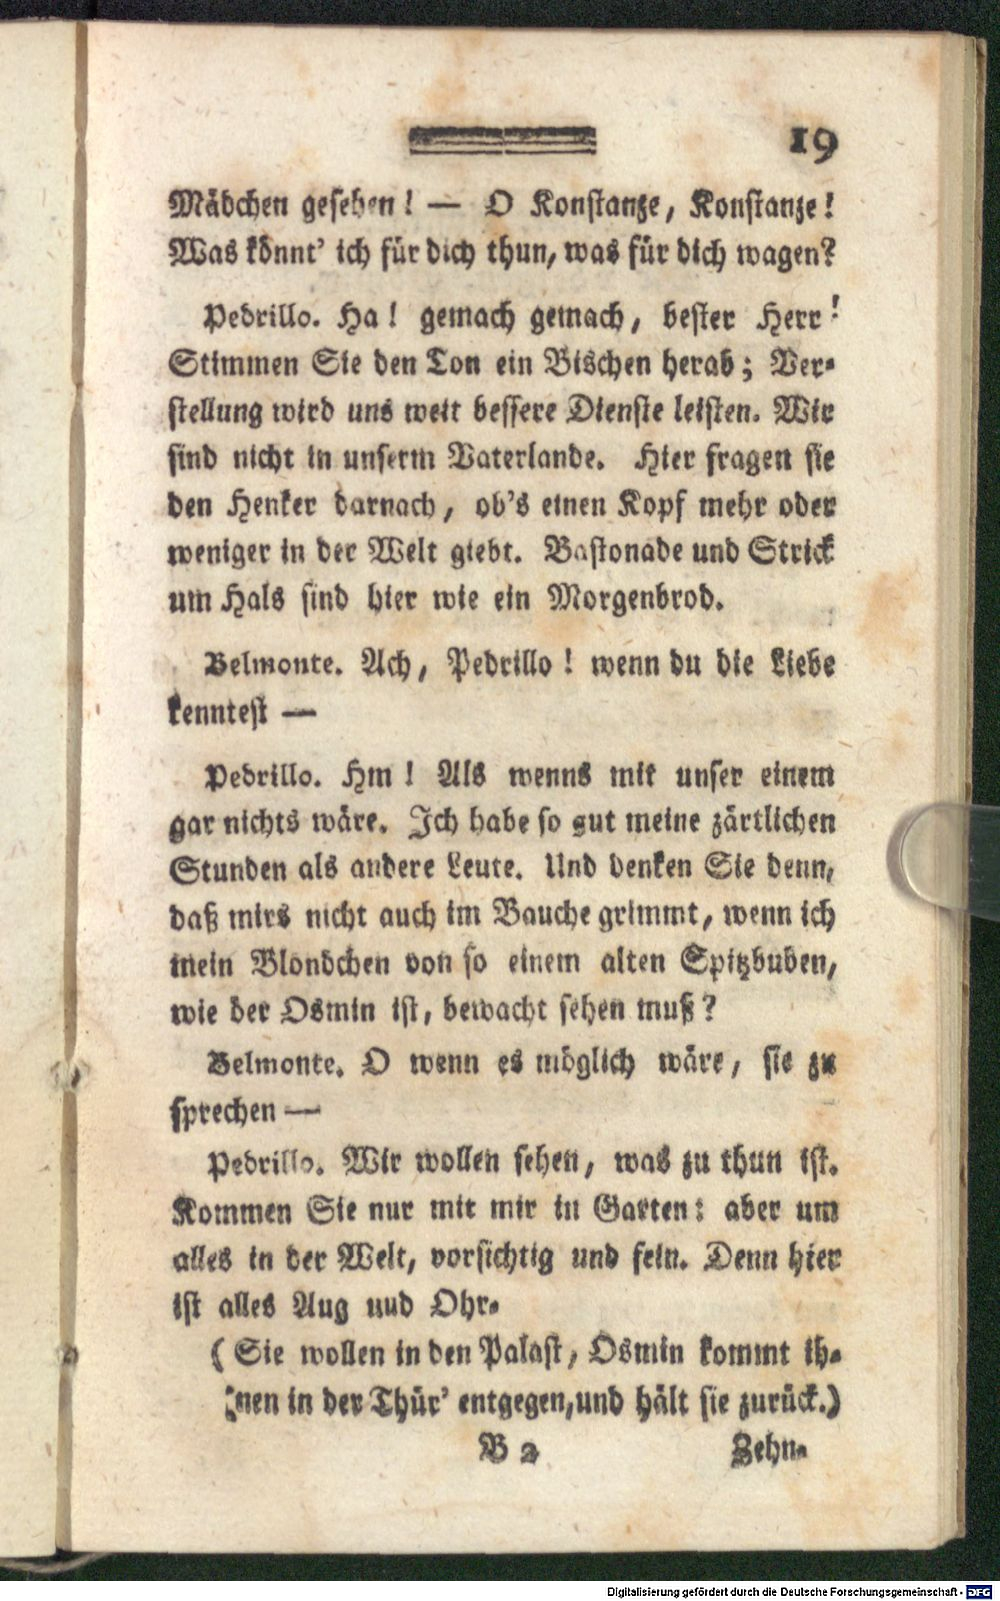 19
Mädchen gesehen! — O Konstanze, Konstanze!
Was könnt' ich für dich thun, was für dich wagen?
Pedrillo. Ha! gemach gemach, bester Herr!
Stimmen Sie den Ton ein Bischen herab; Ver-
stellung wird uns weit bessere Dienste leisten. Wir
sind nicht in unserm Vaterlande. Hier fragen sie
den Henker darnach, ob's einen Kopf mehr oder
weniger in der Welt giebt. Bastonade und Strick
um Hals sind hier wie ein Morgenbrod.
Belmonte. Ach, Pedrillo! wenn du die Liebe
kenntest —
Pedrillo. Hm! Als wenns mit unser einem
gar nichts wäre. Ich habe so gut meine zärtlichen
Stunden als andere Leute. Und denken Sie denn,
daß mirs nicht auch im Bauche grimmt, wenn ich
mein Blondchen von so einem alten Spitzbuben,
wie der Osmin ist, bewacht sehen muß?
Belmonte. O wenn es möglich wäre, sie zu
sprechen —
Pedrillo. Wir wollen sehen, was zu thun ist.
Kommen Sie nur mit mir in Garten: aber um
alles in der Welt, vorsichtig und fein. Denn hier
ist alles Aug und Ohr.
(Sie wollen in den Palast, Osmin kommt ih-
nen in der Thür' entgegen, und hält sie zurück.)
B 2 Zehn-
Digitalisierung gefördert durch die Deutsche Forschungsgemeinschaft - DFG